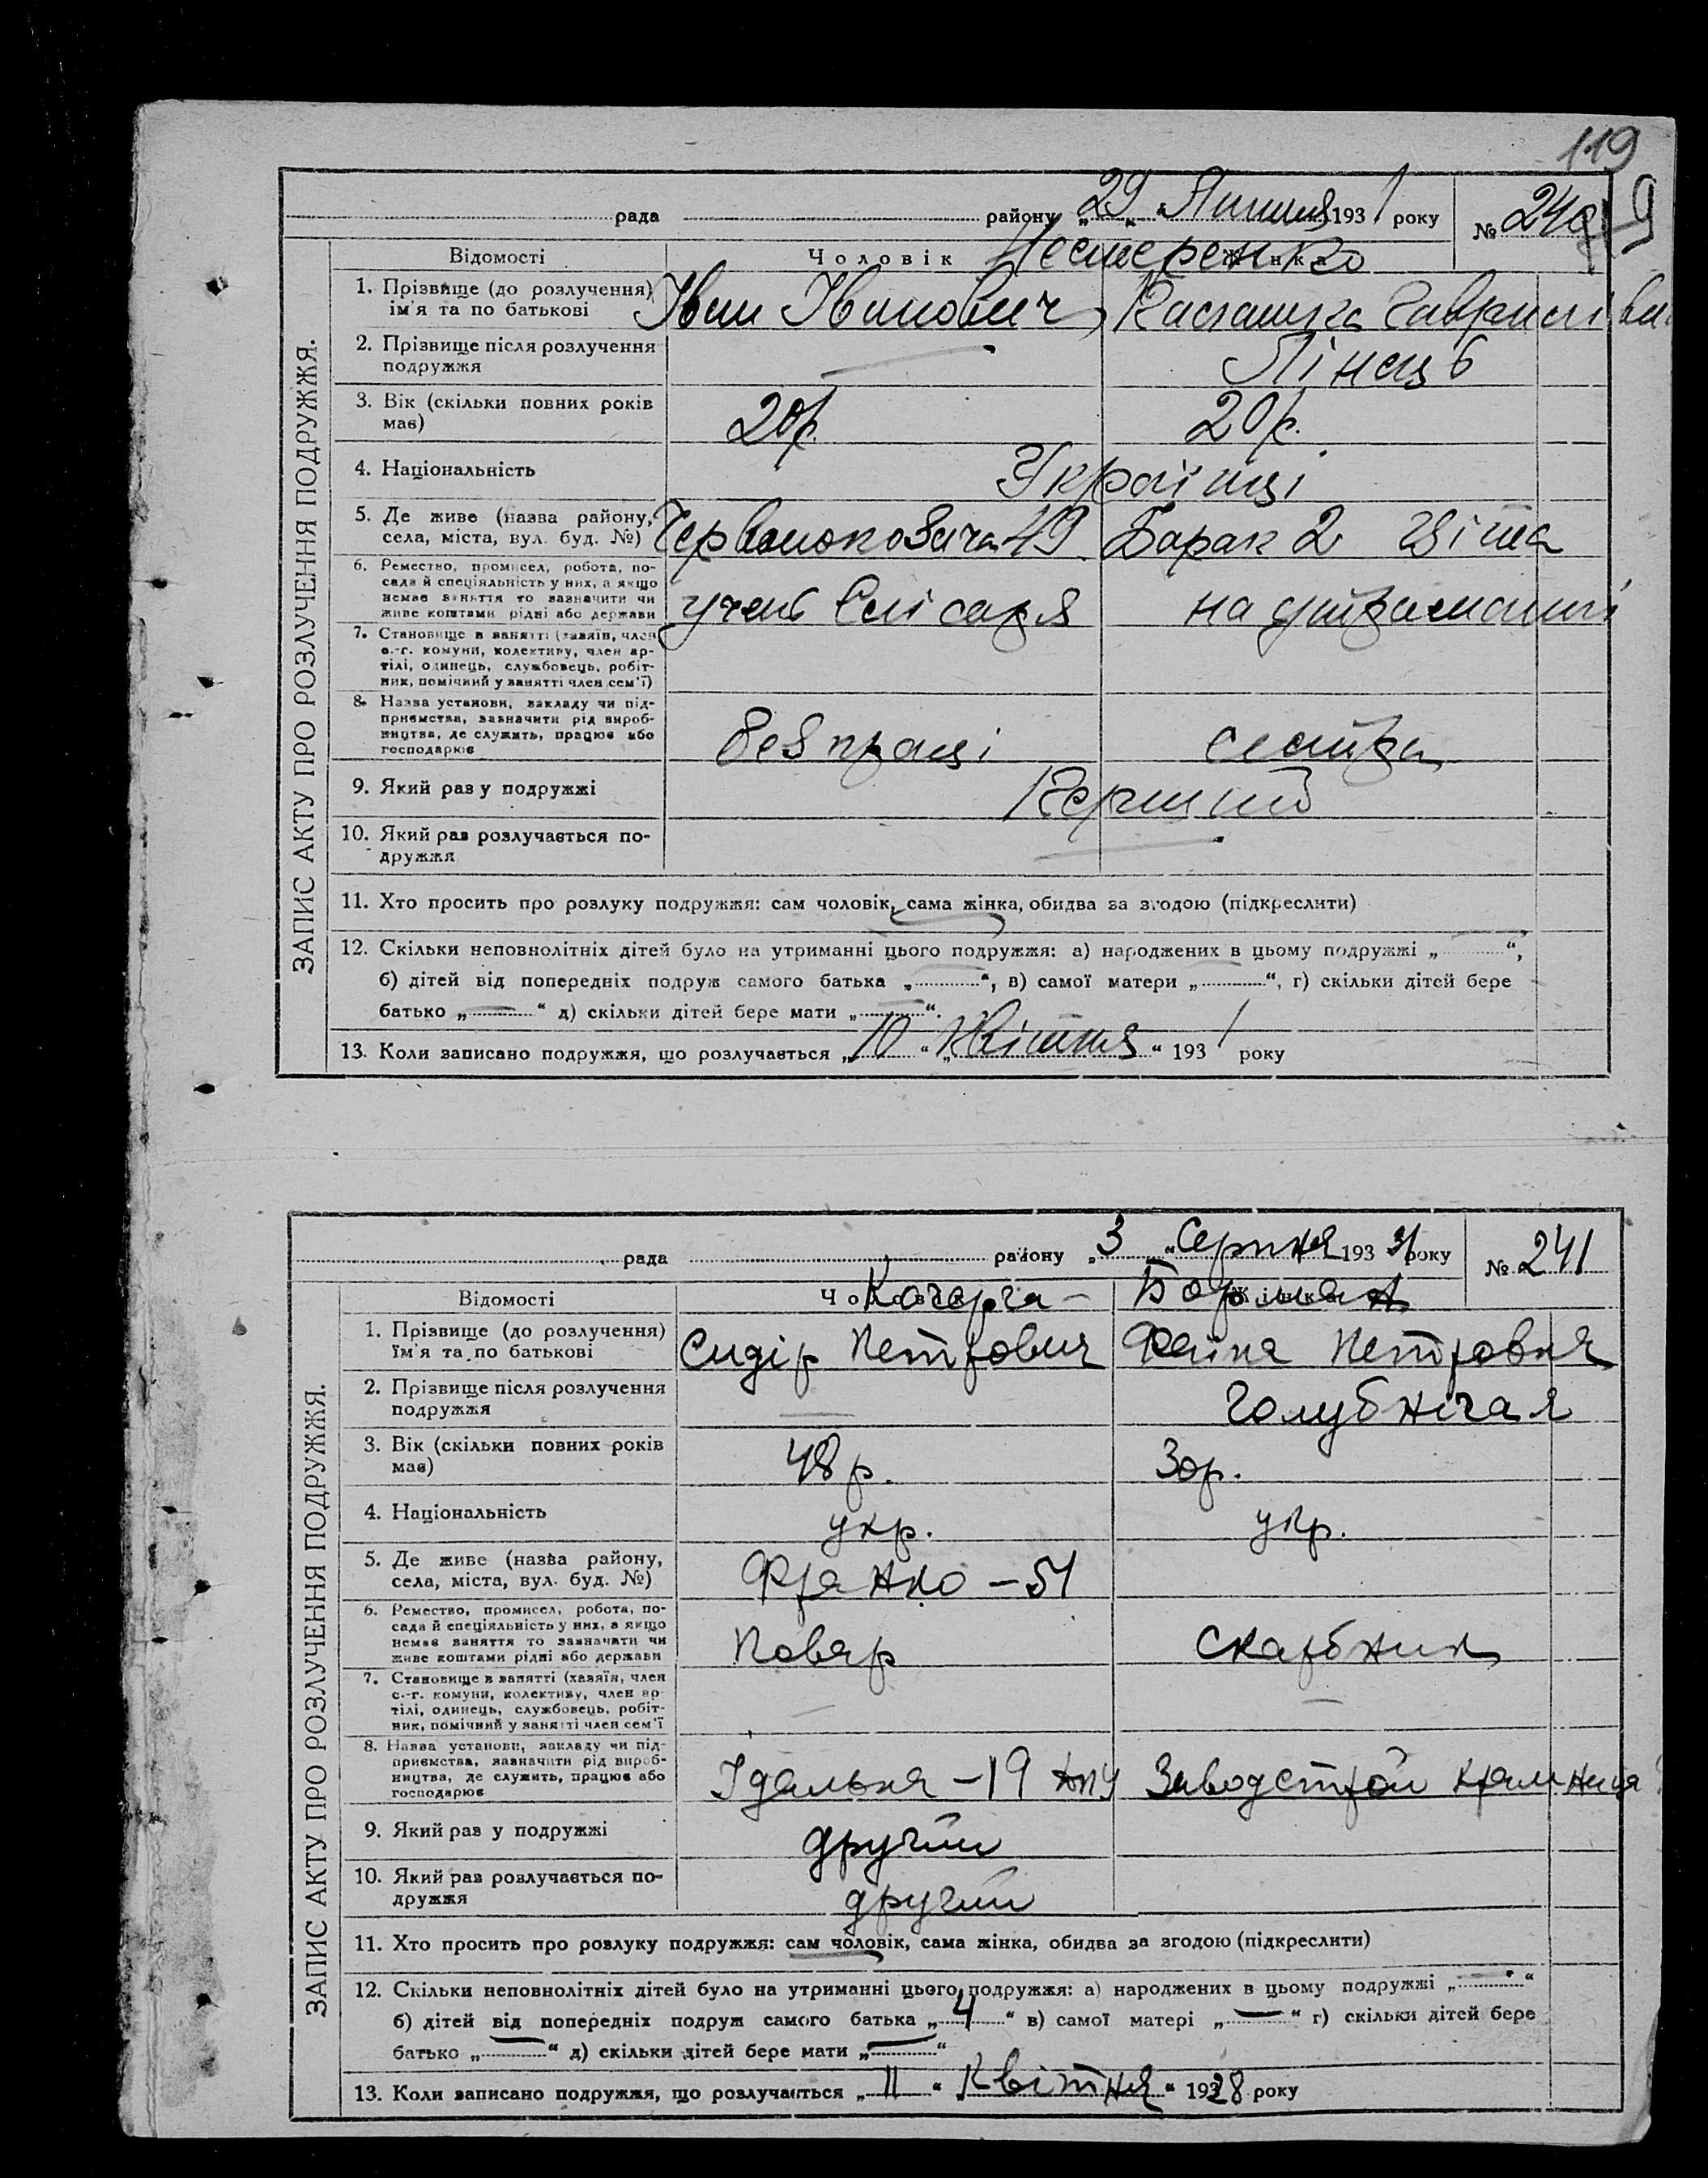 119
рада района „29„ Липня 1931 року № 240
Відомості Чоловік Жінка
Нестеренко
1. Прізвище (до розлучення) ім'я та по батькові Іван Іванович
2. Прізвище після розлучення подружжя — Лінець
3. Вік (скільки повних років має) 20 р. 20 р.
4. Національність Українці
5. Де живе (назва району, села, міста, вул. буд. №) 49 Барак 2
6. Ремество, промисел, робота, посада й спеціяльність у них, а якщо немає заняття то зазначити чи живе коштами рідні або держави учень слісаря на утриманні
7. Становище в занятті (хазяїн, член с.-г. комуни, колективу, член артілі, одинець, службовець, робітник, помічний у занятті член сем'ї)
8. Назва установи, закладу чи підприємства, зазначити рід виробництва, де служить, працює або господарює без праці сестри
9. Який раз у подружжі Перший
10. Який раз розлучається подружжя —
11. Хто просить про розлуку подружжя: сам чоловік, сама жінка, обидва за згодою (підкреслити)
12. Скільки неповнолітніх дітей було на утриманні цього подружжя: а) народжених в цьому подружжі „—“,
б) дітей від попередніх подруж самого батька „—“, в) самої матери „—“, г) скільки дітей бере
батько „—“ д) скільки дітей бере мати „—“.
13. Коли записано подружжя, що розлучається „10“ „Квітня“ 1931 року
ЗАПИС АКТУ ПРО РОЗЛУЧЕННЯ ПОДРУЖЖЯ.
рада району „3“ Серпня 1931 року № 241
Відомості Чоловік Жінка
Кочерга –
1. Прізвище (до розлучення) їм'я та по батькові Сидір Петрович Фаїна Петровня
2. Прізвище після розлучення подружжя — Голубнічая
3. Вік (скільки повних років має) 48 р. 30 р.
4. Національність укр. укр.
5. Де живе (назва району, села, міста, вул. буд. №) Франко – 51
6. Ремество, промисел, робота, посада й спеціяльність у них, а якщо немає заняття то зазначати чи живе коштами рідні або держави Повар скарбник
7. Становище в занятті (хазяїн, член с.-г. комуни, колективу, член артілі, одинець, службовець, робітник, помічний у занятті член сем'ї — —
8. Назва установи, закладу чи підприємства, зазначити рід виробництва, де служить, працює або господарює Їдальня – 19 Заводстрой крамниця
9. Який раз у подружжі другий
10. Який раз розлучається подружжя другий
11. Хто просить про розлуку подружжя: сам чоловік, сама жінка, обидва за згодою (підкреслити)
12. Скільки неповнолітніх дітей було на утриманні цього подружжя: а) народжених в цьому подружжі „—“
б) дітей від попередніх подруж самого батька „4“ в) самої матері „—“ г) скільки дітей бере
батько „—“ д) скільки дітей бере мати „—“
13. Коли записано подружжя, що розлучається „11“ „Квітня“ 1928 року
ЗАПИС АКТУ ПРО РОЗЛУЧЕННЯ ПОДРУЖЖЯ.